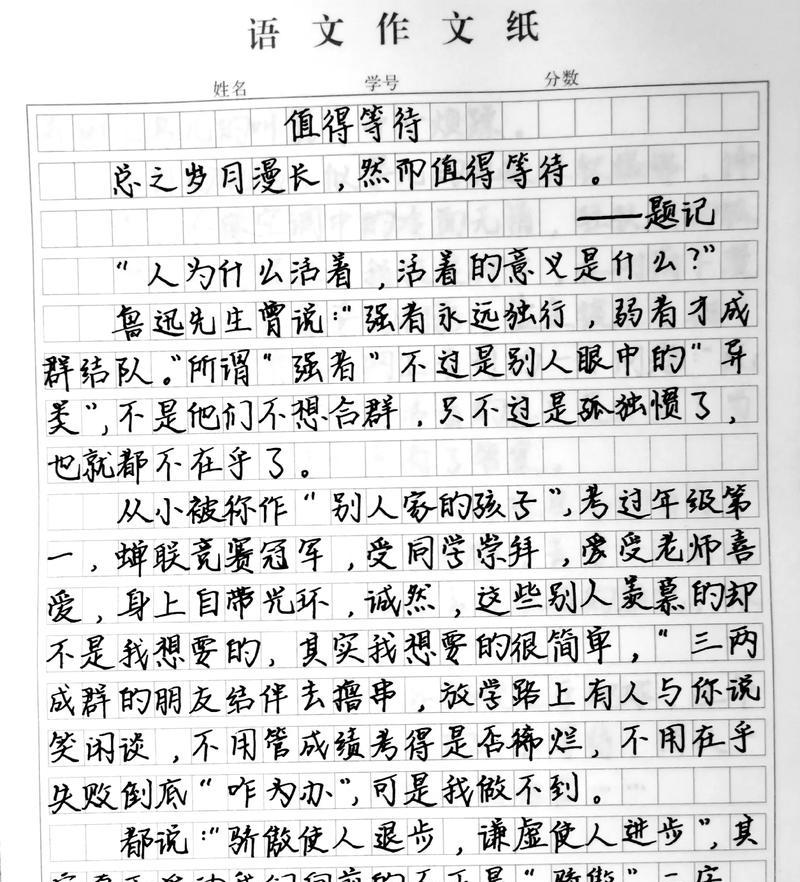 语文作文纸
姓名 学号 分数
值得等待
总之岁月漫长，然而值得等待。
——题记
“人为什么活着，活着的意义是什么？”
鲁迅先生曾说：“强者永远独行，弱者才成
群结队。”所谓“强者”不过是别人眼中的“异
类”，不是他们不想合群，只不过是孤独惯了，
也就都不在乎了。
从小被称作“别人家的孩子”，考过年级第
一，蝉联竞赛冠军，受同学崇拜，受老师喜
爱，身上自带光环，诚然，这些别人羡慕的却
不是我想要的，其实我想要的很简单，“三两
成群的朋友结伴去撸串，放学路上有人与你说
笑闲谈，不用管成绩考得是否稀烂，不用在乎
失败倒底“咋为办”，可是我做不到。
都说：“骄傲使人退步，谦虚使人进步”，其